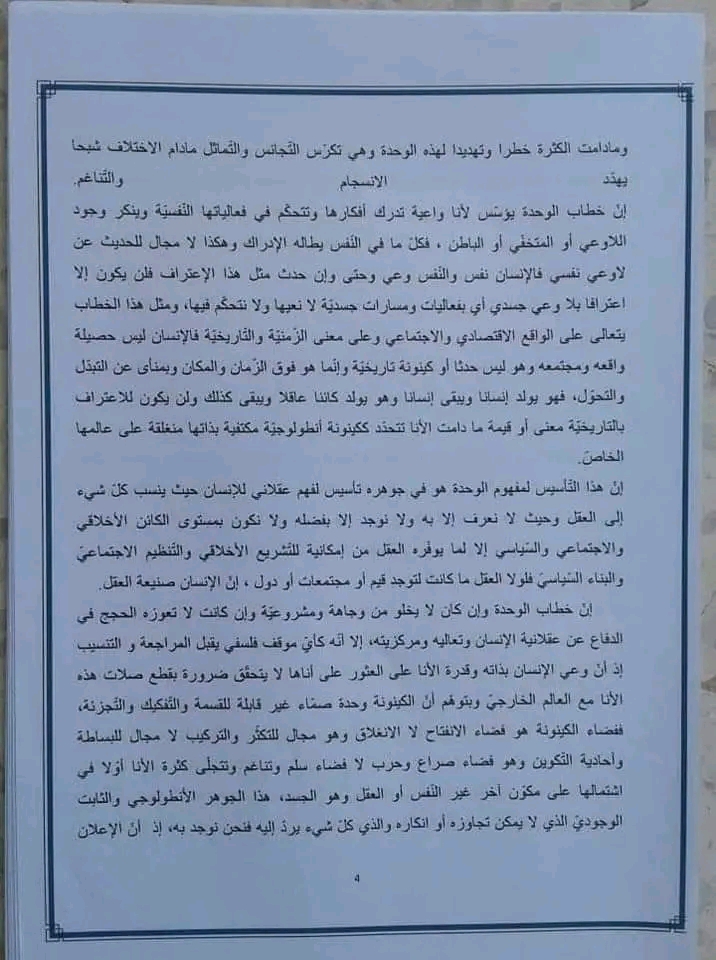 ومادامت الكثرة خطرا وتهديدا لهذه الوحدة وهي تكرّس التّجانس والتّماثل مادام الاختلاف شبحا
يهدّد الانسجام والتّناغم.
إنّ خطاب الوحدة يؤسّس لأنا واعية تدرك أفكارها وتتحكّم في فعالياتها النّفسيّة وينكر وجود
اللاوعي أو المتخفّي أو الباطن ، فكلّ ما في النّفس يطاله الإدراك وهكذا لا مجال للحديث عن
لاوعي نفسي فالإنسان نفس والنّفس وعي وحتى وإن حدث مثل هذا الإعتراف فلن يكون إلا
اعترافا بلا وعي جسدي أي بفعاليات ومسارات جسديّة لا نعيها ولا نتحكّم فيها، ومثل هذا الخطاب
يتعالى على الواقع الاقتصادي والاجتماعي وعلى معنى الزّمنيّة والتّاريخيّة فالإنسان ليس حصيلة
واقعه ومجتمعه وهو ليس حدثا أو كينونة تاريخيّة وإنّما هو فوق الزّمان والمكان وبمنأى عن التبدّل
والتحوّل، فهو يولد إنسانا ويبقى إنسانا وهو يولد كائنا عاقلا ويبقى كذلك ولن يكون للاعتراف
بالتاريخيّة معنى أو قيمة ما دامت الأنا تتحدّد ككينونة أنطولوجيّة مكتفية بذاتها منغلقة على عالمها
الخاصّ.
إنّ هذا التّأسيس لمفهوم الوحدة هو في جوهره تأسيس لفهم عقلاني للإنسان حيث ينسب كلّ شيء
إلى العقل وحيث لا نعرف إلا به ولا نوجد إلا بفضله ولا نكون بمستوى الكائن الأخلاقي
والاجتماعي والسّياسي إلا لما يوفّره العقل من إمكانية للتّشريع الأخلاقي والتّنظيم الاجتماعيّ
والبناء السّياسيّ فلولا العقل ما كانت لتوجد قيم أو مجتمعات أو دول ، إنّ الإنسان صنيعة العقل.
إنّ خطاب الوحدة وإن كان لا يخلو من وجاهة ومشروعيّة وإن كانت لا تعوزه الحجج في
الدفاع عن عقلانية الإنسان وتعاليه ومركزيته، إلا أنّه كأيّ موقف فلسفي يقبل المراجعة و التنسيب
إذ أنّ وعي الإنسان بذاته وقدرة الأنا على العثور على أناها لا يتحقّق ضرورة بقطع صلات هذه
الأنا مع العالم الخارجيّ وبتوهّم أنّ الكينونة وحدة صمّاء غير قابلة للقسمة والتّفكيك والتّجزئة،
ففضاء الكينونة هو فضاء الانفتاح لا الانغلاق وهو مجال للتكثّر والتركيب لا مجال للبساطة
وأحادية التّكوين وهو فضاء صراع وحرب لا فضاء سلم وتناغم وتتجلّى كثرة الأنا أوّلا في
اشتمالها على مكوّن آخر غير النّفس أو العقل وهو الجسد، هذا الجوهر الأنطولوجي والثابت
الوجوديّ الذي لا يمكن تجاوزه أو انكاره والذي كلّ شيء يردّ إليه فنحن نوجد به، إذ أنّ الإعلان
4